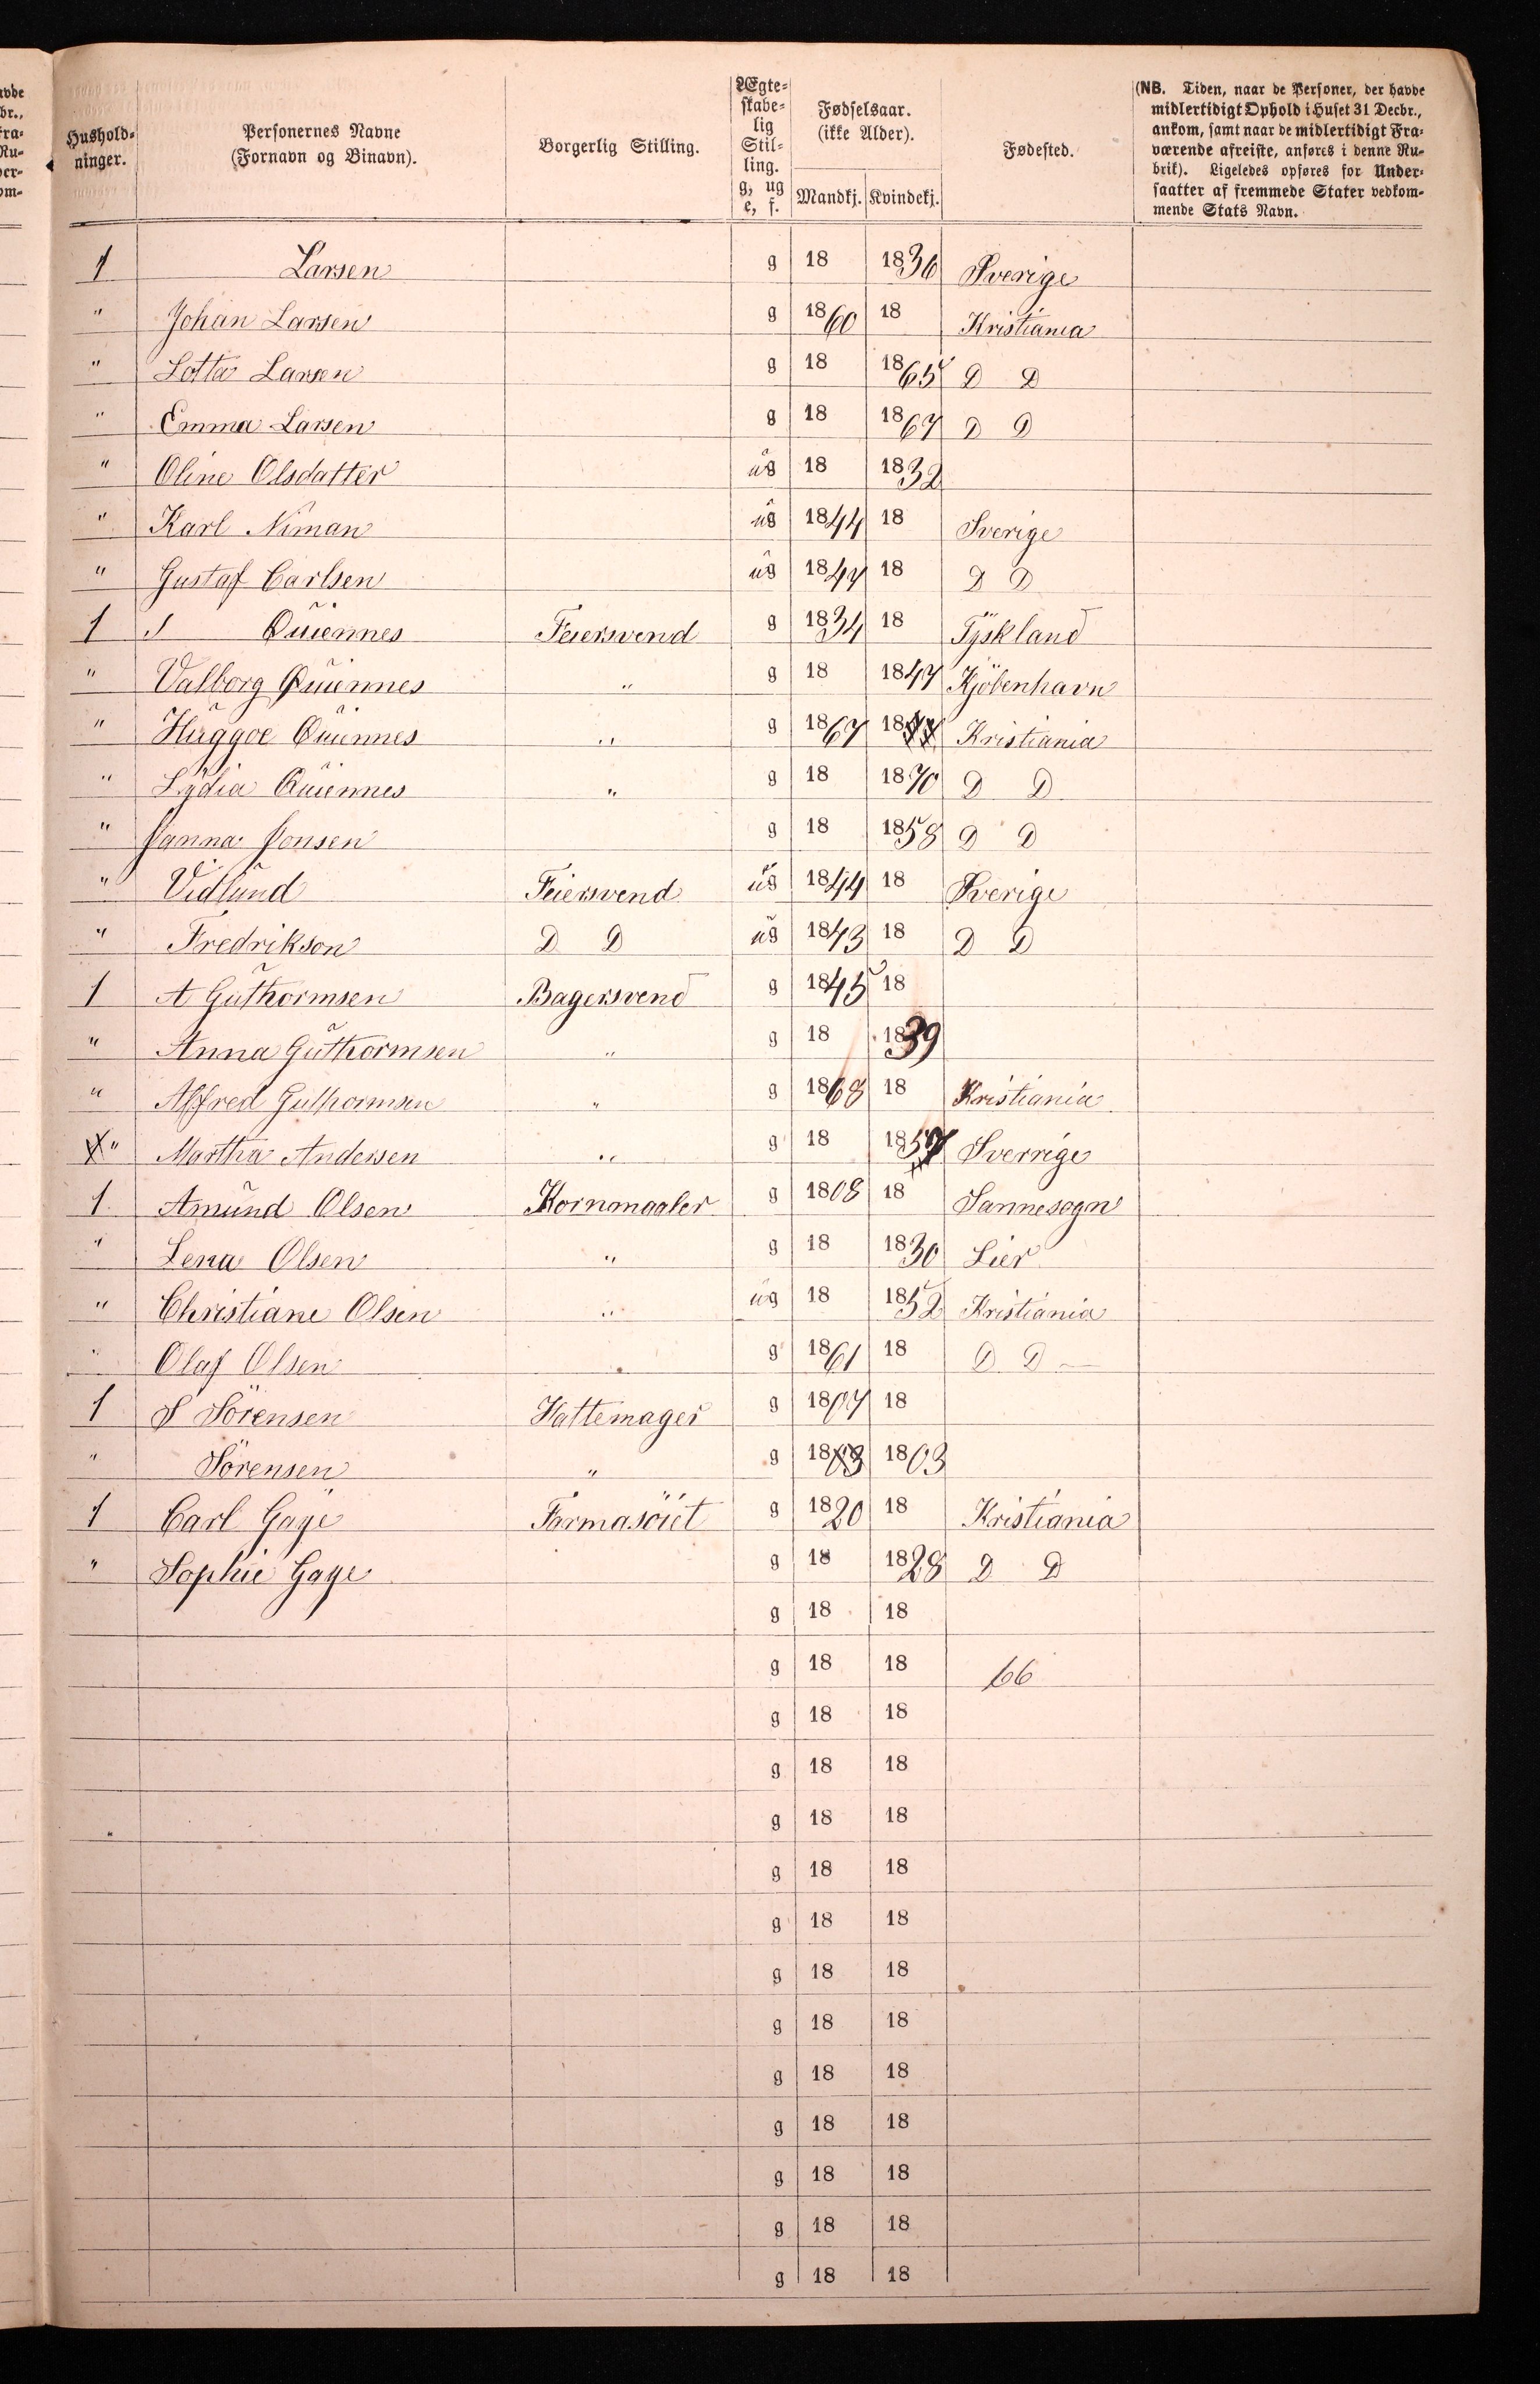 Hushold-
ninger.
Personernes Navne
(Fornavn og Binavn).
Borgerlig Stilling.
Ægte-
skabe-
lig
Stil-
ling.
g, ug
e, f.
Fødselsaar.
(ikke Alder).
Mandkj. Kvindekj.
Fødested.
(NB. Tiden, naar de Personer, der havde
midlertidigt Ophold i Huset 31 Decbr.,
ankom, samt naar de midlertidigt Fra-
værende afreiste, anføres i denne Ru-
brik). Ligeledes opføres for Under-
saatter af fremmede Stater vedkom-
mende Stats Navn.
1 Larsen g 18 1836 Sverige
" Johan Larsen g 1860 18 Kristiania
" Lotta Larsen g 18 1865 D D
" Emma Larsen g 18 1867 D D
" Oline Olsdatter ug 18 1832
" Karl Niman ug 1844 18 Sverige
" Gustaf Carlsen ug 1847 18 D D
1 S Quiennes Feiersvend g 1834 18 Tyskland
" Valborg Quiennes " g 18 1847 Kjöbenhavn
" Huggoe Quiennes " g 1867 18 Kristiania
" Lydia Quiennes " g 18 1870 D D
" Janna Jonsen g 18 1858 D D
" Vidlund Feiersvend ug 1844 18 Sverige
" Fredrikson D D ug 1843 18 D D
1 A Guthormsen Bagersvend g 1845 18
" Anna Guthormsen " g 18 1839
" Alfred Guthormsen " g 1868 18 Kristiania
X " Martha Andersen " g 18 1857 Sverrige
1 Amund Olsen Kornmaaler g 1808 18 Sannesogn
" Lena Olsen " g 18 1830 Lier
" Christiane Olsen " ug 18 1852 Kristiania
" Olaf Olsen g 1861 18 D D
1 S Sörensen Hattemager g 1807 18
" Sörensen " g 1803 1803
1 Carl Gaye Farmasöiet g 1820 18 Kristiania
" Sophie Gaye g 18 1828 D D
g 18 18
g 18 18 66
g 18 18
g 18 18
g 18 18
g 18 18
g 18 18
g 18 18
g 18 18
g 18 18
g 18 18
g 18 18
g 18 18
g 18 18